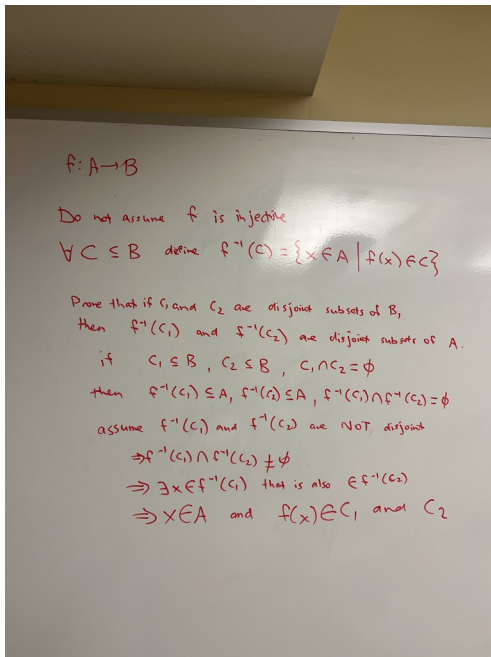 f: A→B
Do not assume f is injective
∀ C ⊆ B define f⁻¹(C) = {x ∈ A | f(x) ∈ C}
Prove that if C₁ and C₂ are disjoint subsets of B,
then f⁻¹(C₁) and f⁻¹(C₂) are disjoint subsets of A.
if C₁ ⊆ B, C₂ ⊆ B, C₁ ∩ C₂ = ϕ
then f⁻¹(C₁) ⊆ A, f⁻¹(C₂) ⊆ A, f⁻¹(C₁) ∩ f⁻¹(C₂) = ϕ
assume f⁻¹(C₁) and f⁻¹(C₂) are NOT disjoint
⇒ f⁻¹(C₁) ∩ f⁻¹(C₂) ≠ ϕ
⇒ ∃x ∈ f⁻¹(C₁) that is also ∈ f⁻¹(C₂)
⇒ x ∈ A and f(x) ∈ C₁ and C₂